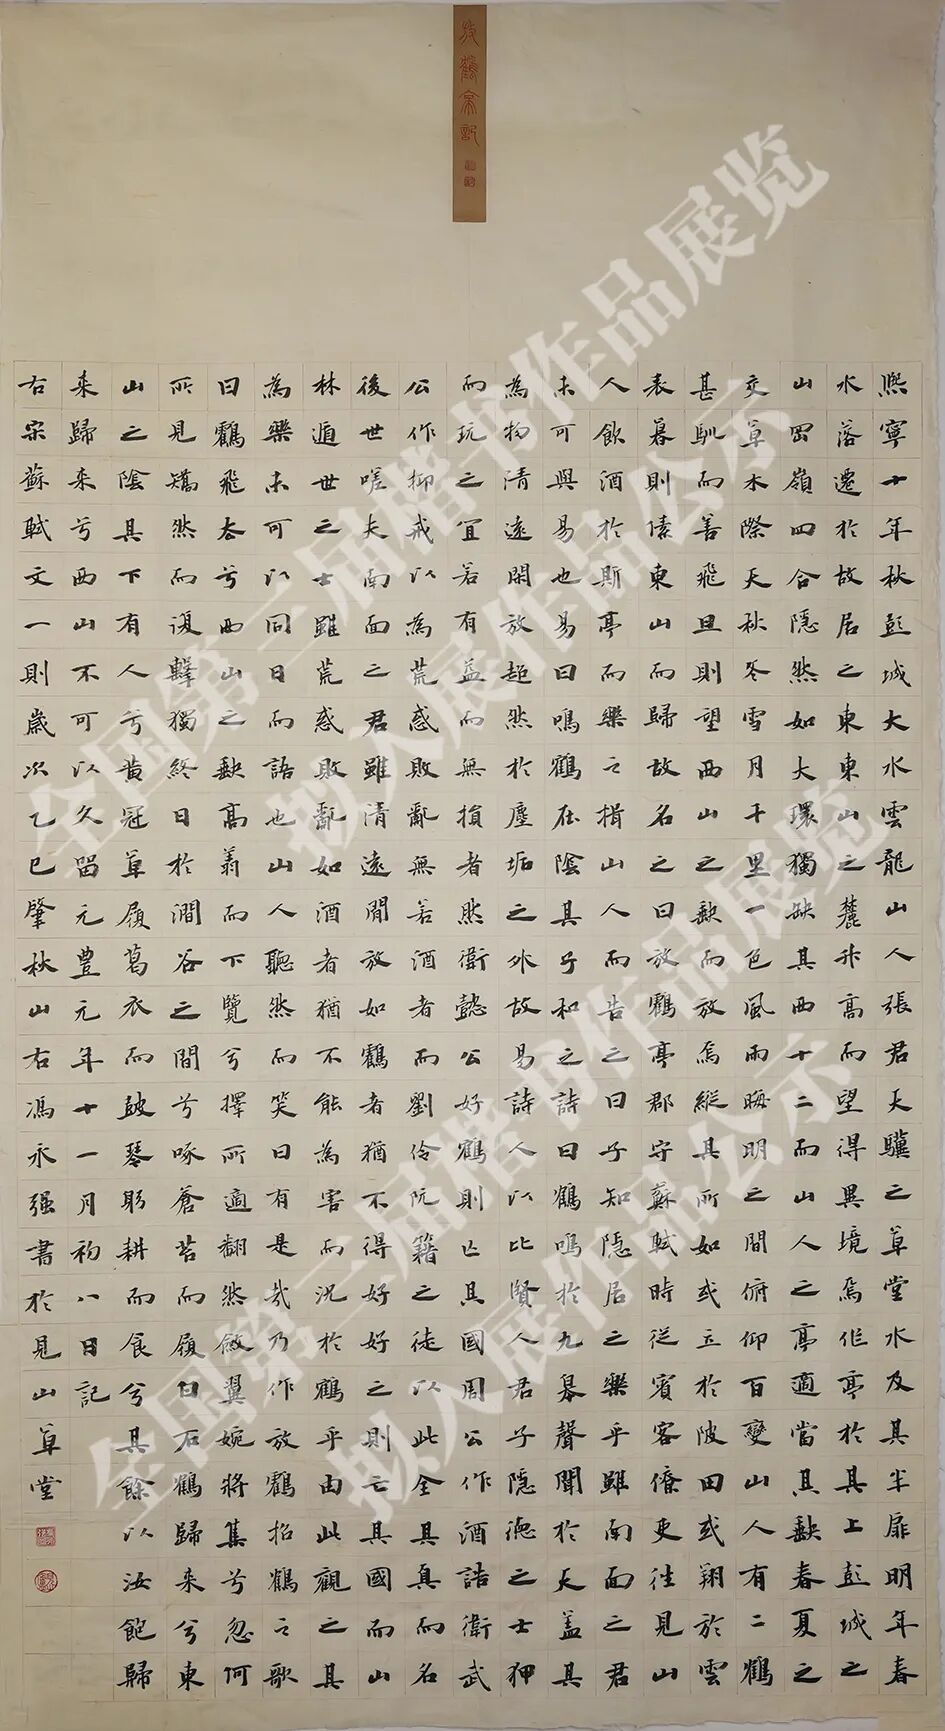 放鶴亭記
熙寧十年秋彭城大水雲龍山人張君天驥之草堂水及其半扉明年春
水落遷於故居之東東山之麓升高而望得異境焉作亭於其上彭城之
山岡嶺四合隱然如大環獨缺其西十二而山人之亭適當其缺春夏之
交草木際天秋冬雪月千里一色風雨晦明之間俯仰百變山人有二鶴
甚馴而善飛旦則望西山之缺而放焉縱其所如或立於陂田或翔於雲
表暮則傃東山而歸故名之曰放鶴亭郡守蘇軾時從賓客僚吏往見山
人飲酒於斯亭而樂之揖山人而告之曰子知隱居之樂乎雖南面之君
未可與易也易曰鳴鶴在陰其子和之詩曰鶴鳴於九皋聲聞於天蓋其
為物清遠閑放超然於塵垢之外故易詩人以比賢人君子隱德之士狎
而玩之宜若有益而無損者然衛懿公好鶴則亡其國周公作酒誥衛武
公作抑戒以為荒惑敗亂無若酒者而劉伶阮籍之徒以此全其真而名
後世嗟夫南面之君雖清遠閒放如鶴者猶不得好好之則亡其國而山
林遁世之士雖荒惑敗亂如酒者猶不能為害而況於鶴乎由此觀之其
為樂未可以同日而語也山人聽然而笑曰有是哉乃作放鶴招鶴之歌
曰鶴飛去兮西山之缺高翔而下覽兮擇所適翻然斂翼婉將集兮忽何
所見矯然而復擊獨終日於澗谷之間兮啄蒼苔而履白石鶴歸來兮東
山之陰其下有人兮黃冠草履葛衣而鼓琴躬耕而食兮其餘以汝飽歸
來歸來兮西山不可以久留元豐元年十一月初八日記
右宋蘇軾文一則歲次乙巳肇秋山右馮永强書於見山草堂
全国第三届楷书作品展览
拟入展作品公示
全国第三届楷书作品展览
拟入展作品公示